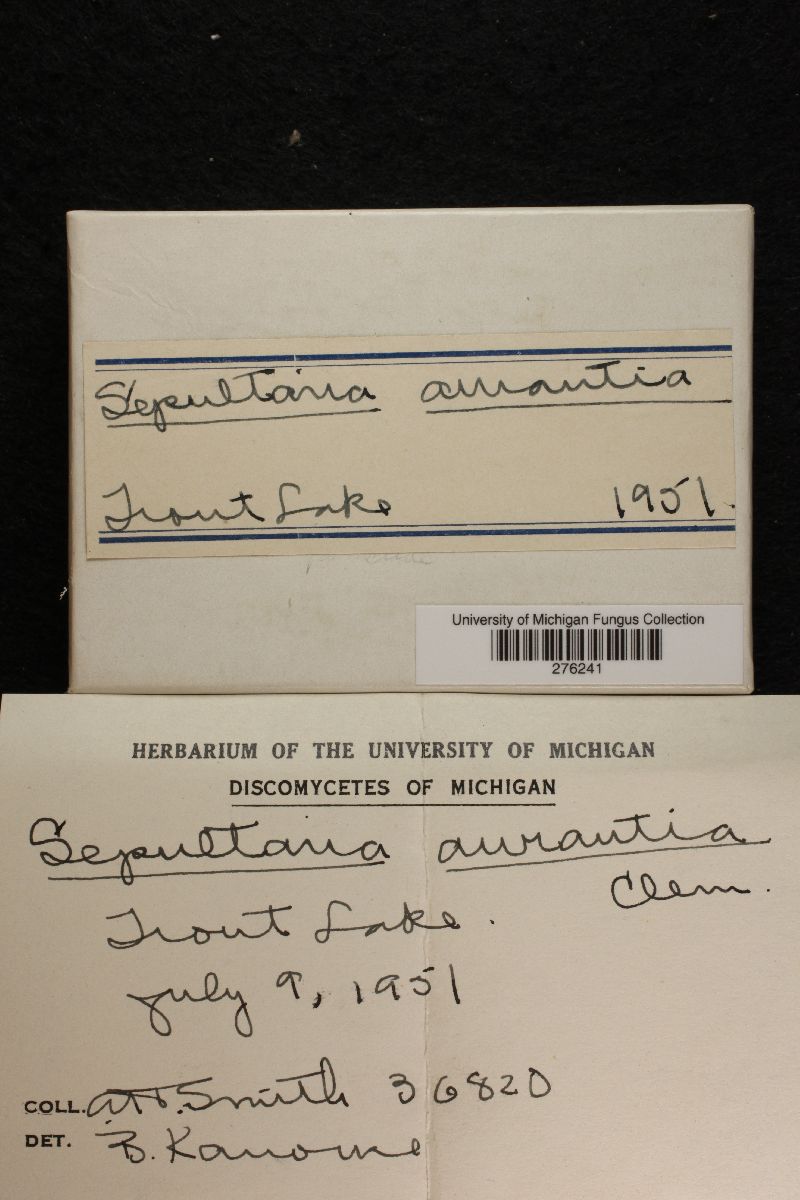 Sepultaria aurantia
Trout Lake 1951.
University of Michigan Fungus Collection
276241
HERBARIUM OF THE UNIVERSITY OF MICHIGAN
DISCOMYCETES OF MICHIGAN
Sepultaria aurantia
Clem.
Trout Lake.
July 9, 1951
COLL. A.H. Smith 36820
DET. B. Kanouse